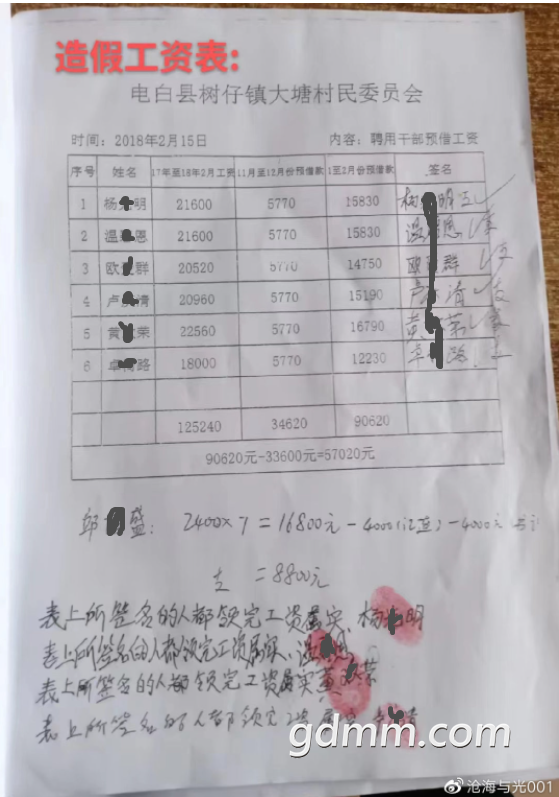 造假工资表:
电白县树仔镇大塘村民委员会
时间：2018年2月15日 内容：聘用干部预借工资
序号 姓名 17年至18年2月工资 11月至12月份预借款 1至2月份预借款 签名
1 杨 明 21600 5770 15830 杨 明
2 温 恩 21600 5770 15830 温 恩
3 欧 群 20520 5770 14750 欧 群
4 卢 清 20960 5770 15190 卢 清
5 黄 荣 22560 5770 16790 黄 荣
6 卓 路 18000 5770 12230 卓 路
125240 34620 90620
90620元-33600元=57020元
邱 盛： 2400×7=16800元-4000 -4000元
=8800元
表上所签名的人都领完工资属实 杨 明
表上所签名的人都领完工资属实、温
表上所签名的人都领完工资属实黄 荣
表上所签名的人都领完工资
gdmm.com
沧海与光001